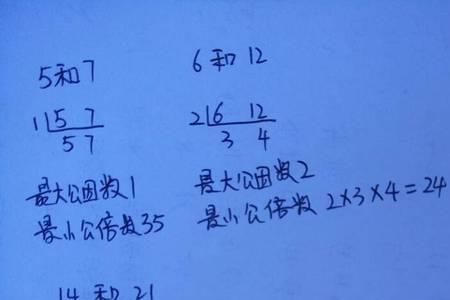 5和7
1 5 7
5 7
最大公因数1
最小公倍数35
6和12
2 6 12
3 4
最大公因数2
最小公倍数 2×3×4=24
14和21